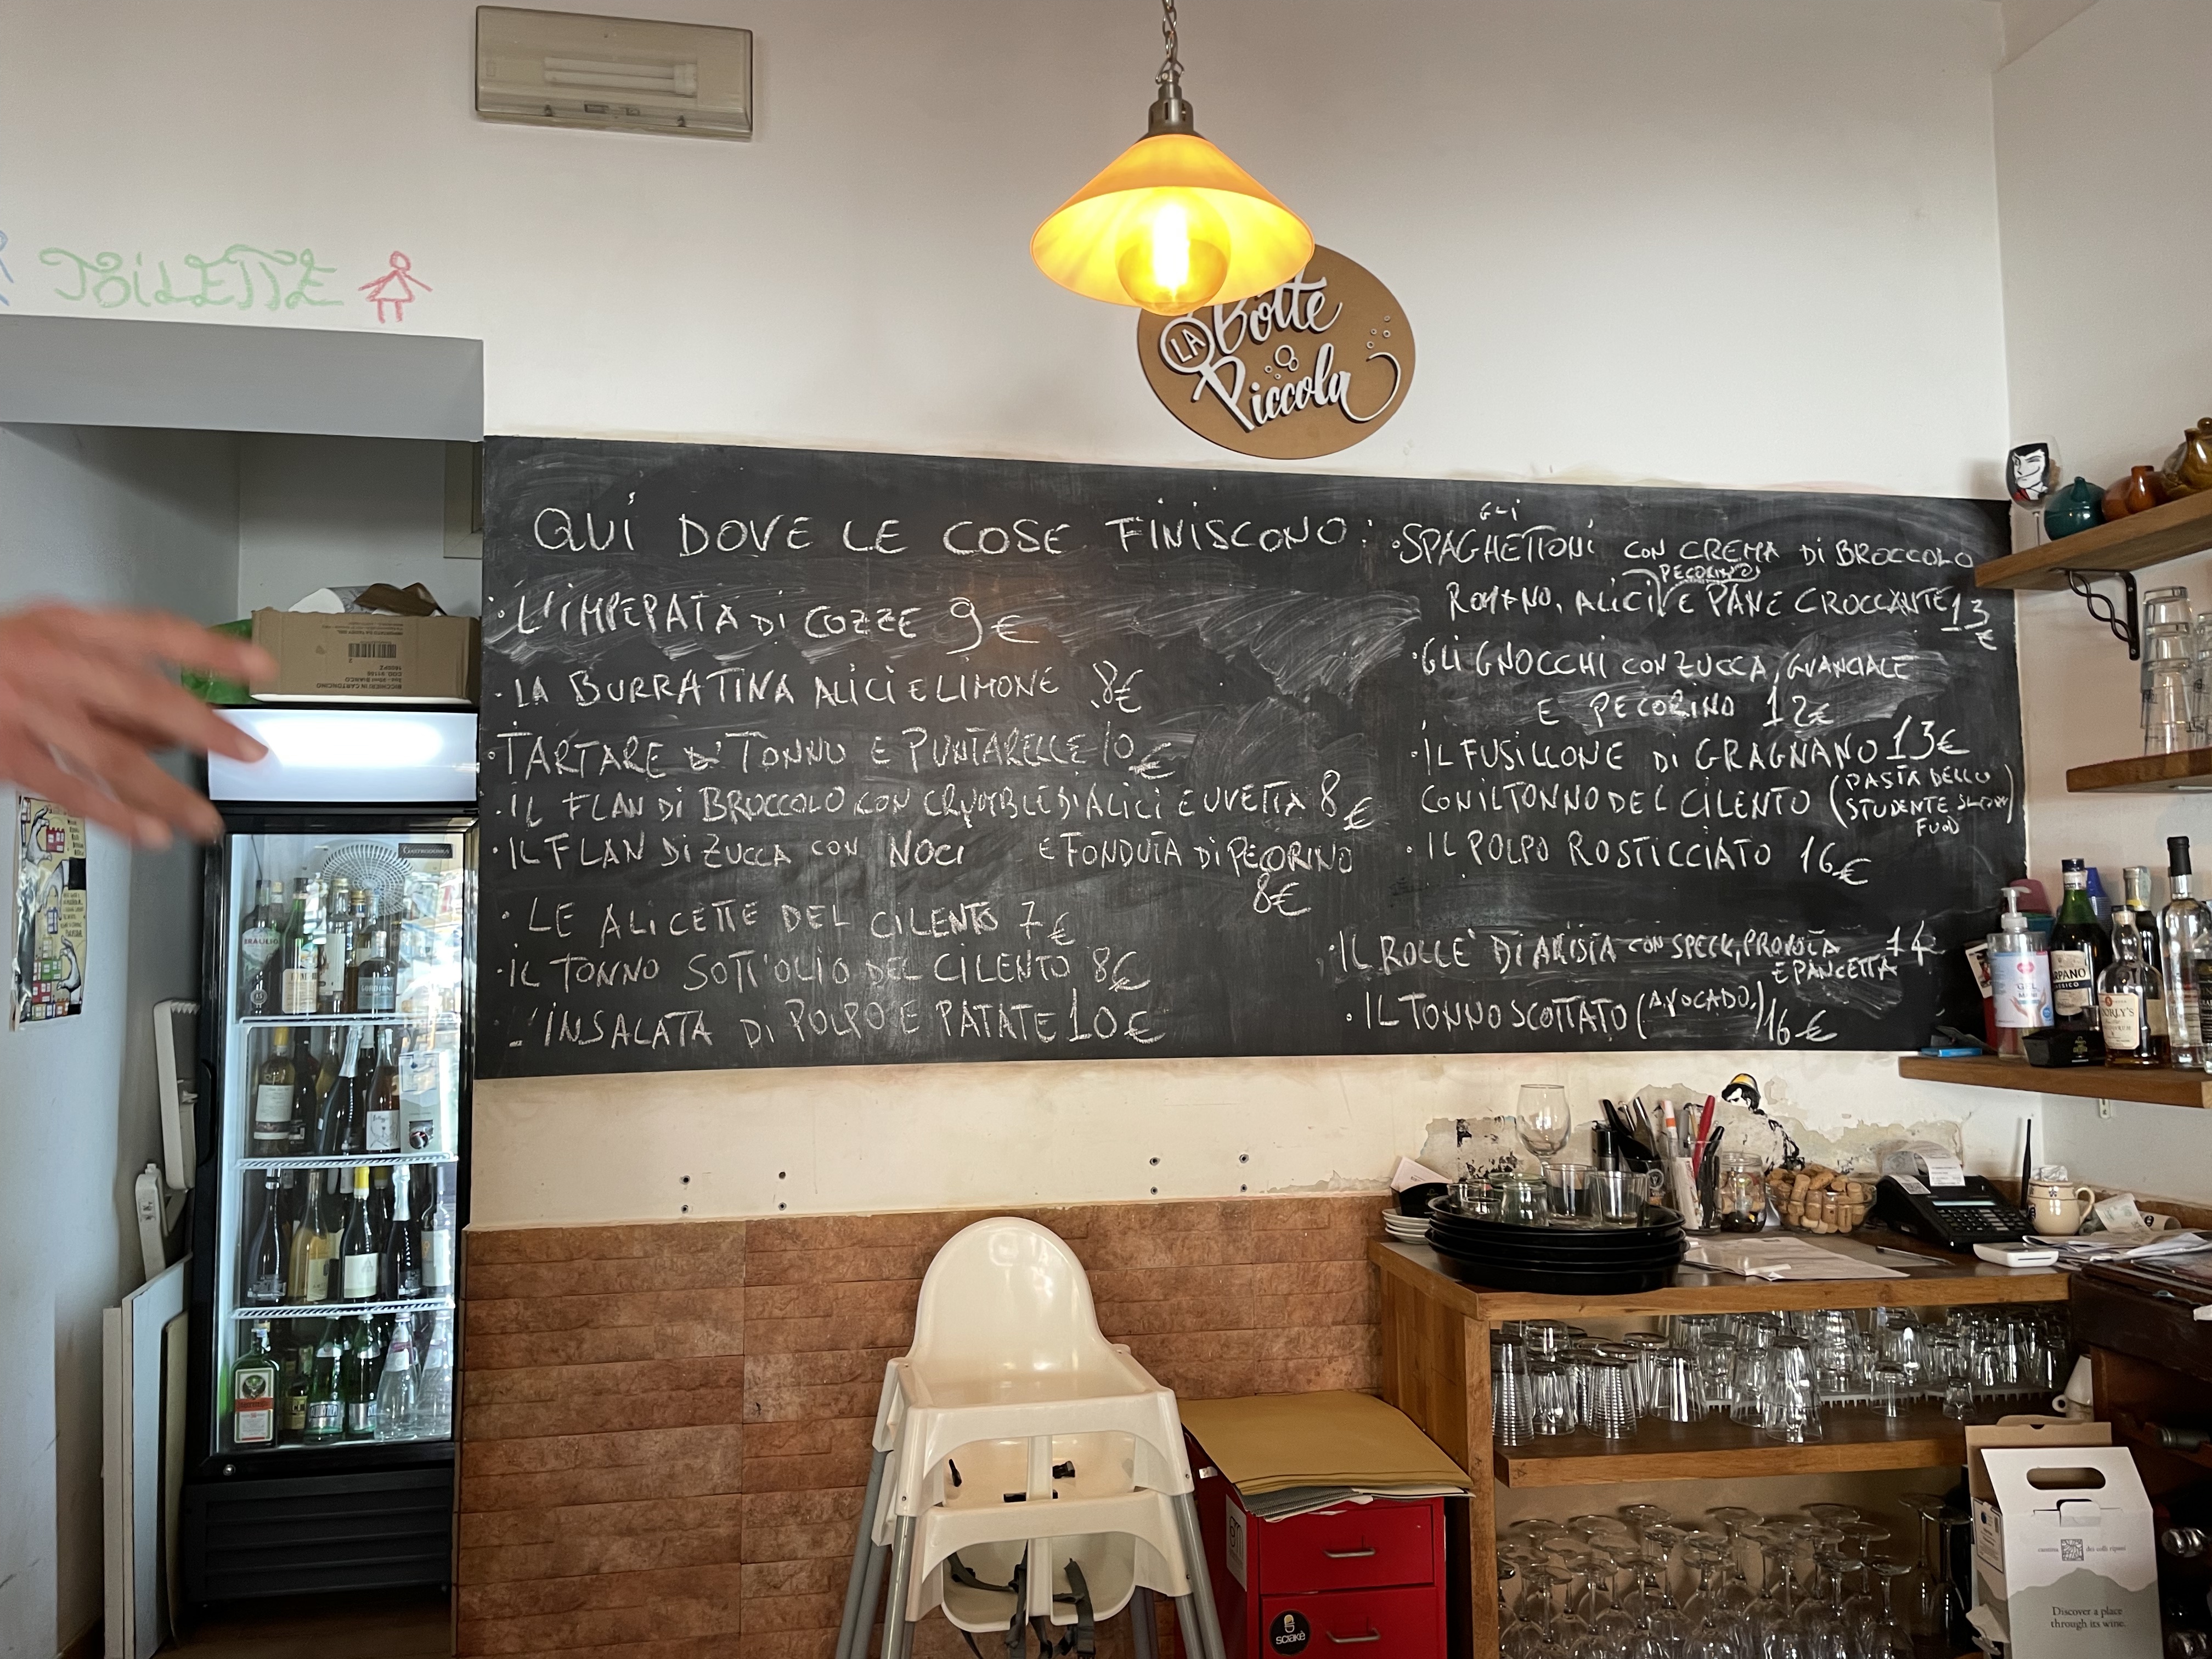 TOiLETTE
LA Botte
Piccola
QUI DOVE LE COSE FINISCONO:
· L'IMPEPATA DI COZZE 9€
· LA BURRATINA ALICI E LIMONE 8€
· TARTARE DI TONNO E PUNTARELLE 10€
· IL FLAN DI BROCCOLO CON CRUMBLE DI ALICI E UVETTA 8€
· IL FLAN DI ZUCCA CON NOCI E FONDUTA DI PECORINO
8€
· LE ALICETTE DEL CILENTO 7€
· IL TONNO SOTT'OLIO DEL CILENTO 8€
L'INSALATA DI POLPO E PATATE 10€
GLI
· SPAGHETTONI CON CREMA DI BROCCOLO
PECORINO
ROMANO, ALICI E PANE CROCCANTE 13€
· GLI GNOCCHI CON ZUCCA, GUANCIALE
E PECORINO 12€
· IL FUSILLONE DI GRAGNANO 13€
CON IL TONNO DEL CILENTO (PASTA DELLO
STUDENTE
· IL POLPO ROSTICCIATO 16€
· IL ROLLE' DI ARISTA CON SPECK, PROVOLA 14
E PANCETTA
· IL TONNO SCOTTATO (AVOCADO,) 16€
BRAULIO
GEL
sciakè
cantina dei colli ripani
Discover a place
through its wine.